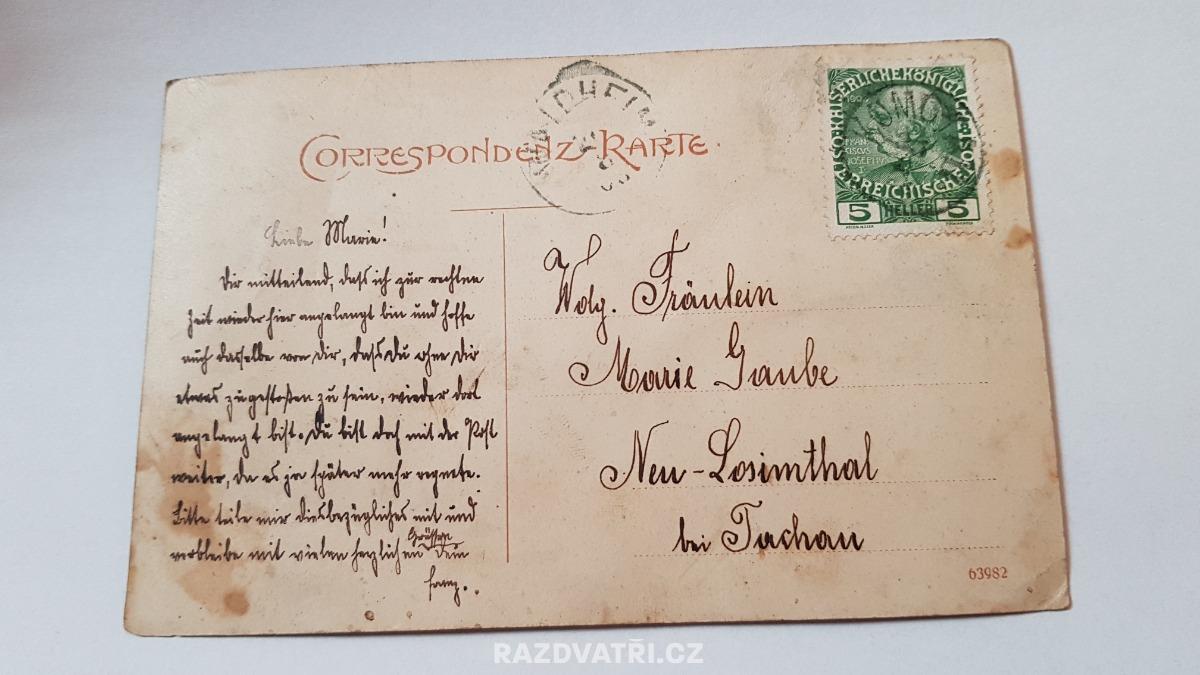 CORRESPONDENZ-KARTE.
KAISERLICHE KÖNIGLICHE
ÖSTERREICHISCHE
FRAN
CISCUS
JOSEPHVS
5 HELLER 5
Liebe Marie!
Dir mitteilend, dass ich zur rechten
Zeit wieder hier angelangt bin und hoffe
auch dasselbe von Dir, dass Du ohne Dir
etwas zugestoßen zu sein, wieder dort
angelangt bist. Du bist doch mit der Post
weiter, da es ja später mehr regnete.
Bitte teile mir diesbezügliches mit und
verbleibe mit vielen herzlichen Grüssen Dein
Franz.
Wdg. Fräulein
Marie Gaube
Neu-Losimthal
bei Tachau
63982
RAZDVATŘI.CZ